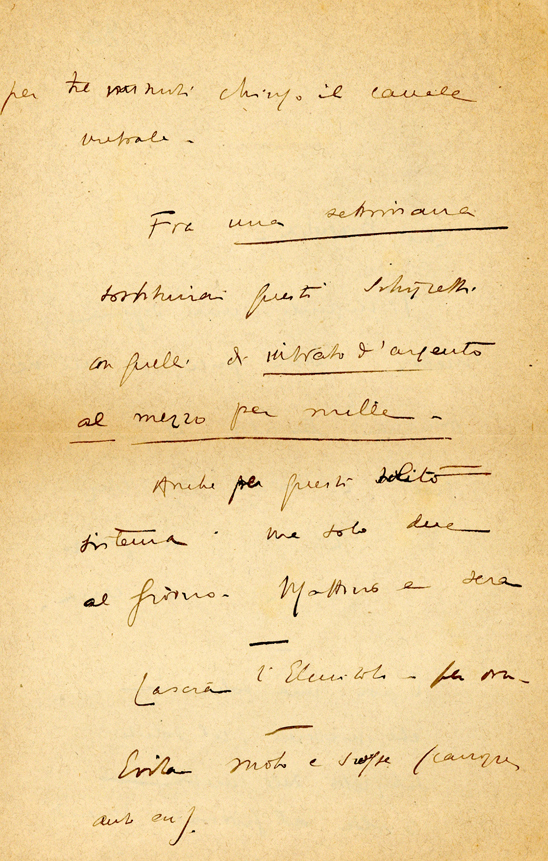 per tre minuti chiuso il canale
uretrale -
Fra una settimana
sostituirai questi Schizzetti
con quelli di nitrato d'argento
al mezzo per mille -
Anche per questi solito
sistema ma solo due
al giorno - Mattino e sera
Lascia l'Elmitolo - per ora -
Evita moto e scosse